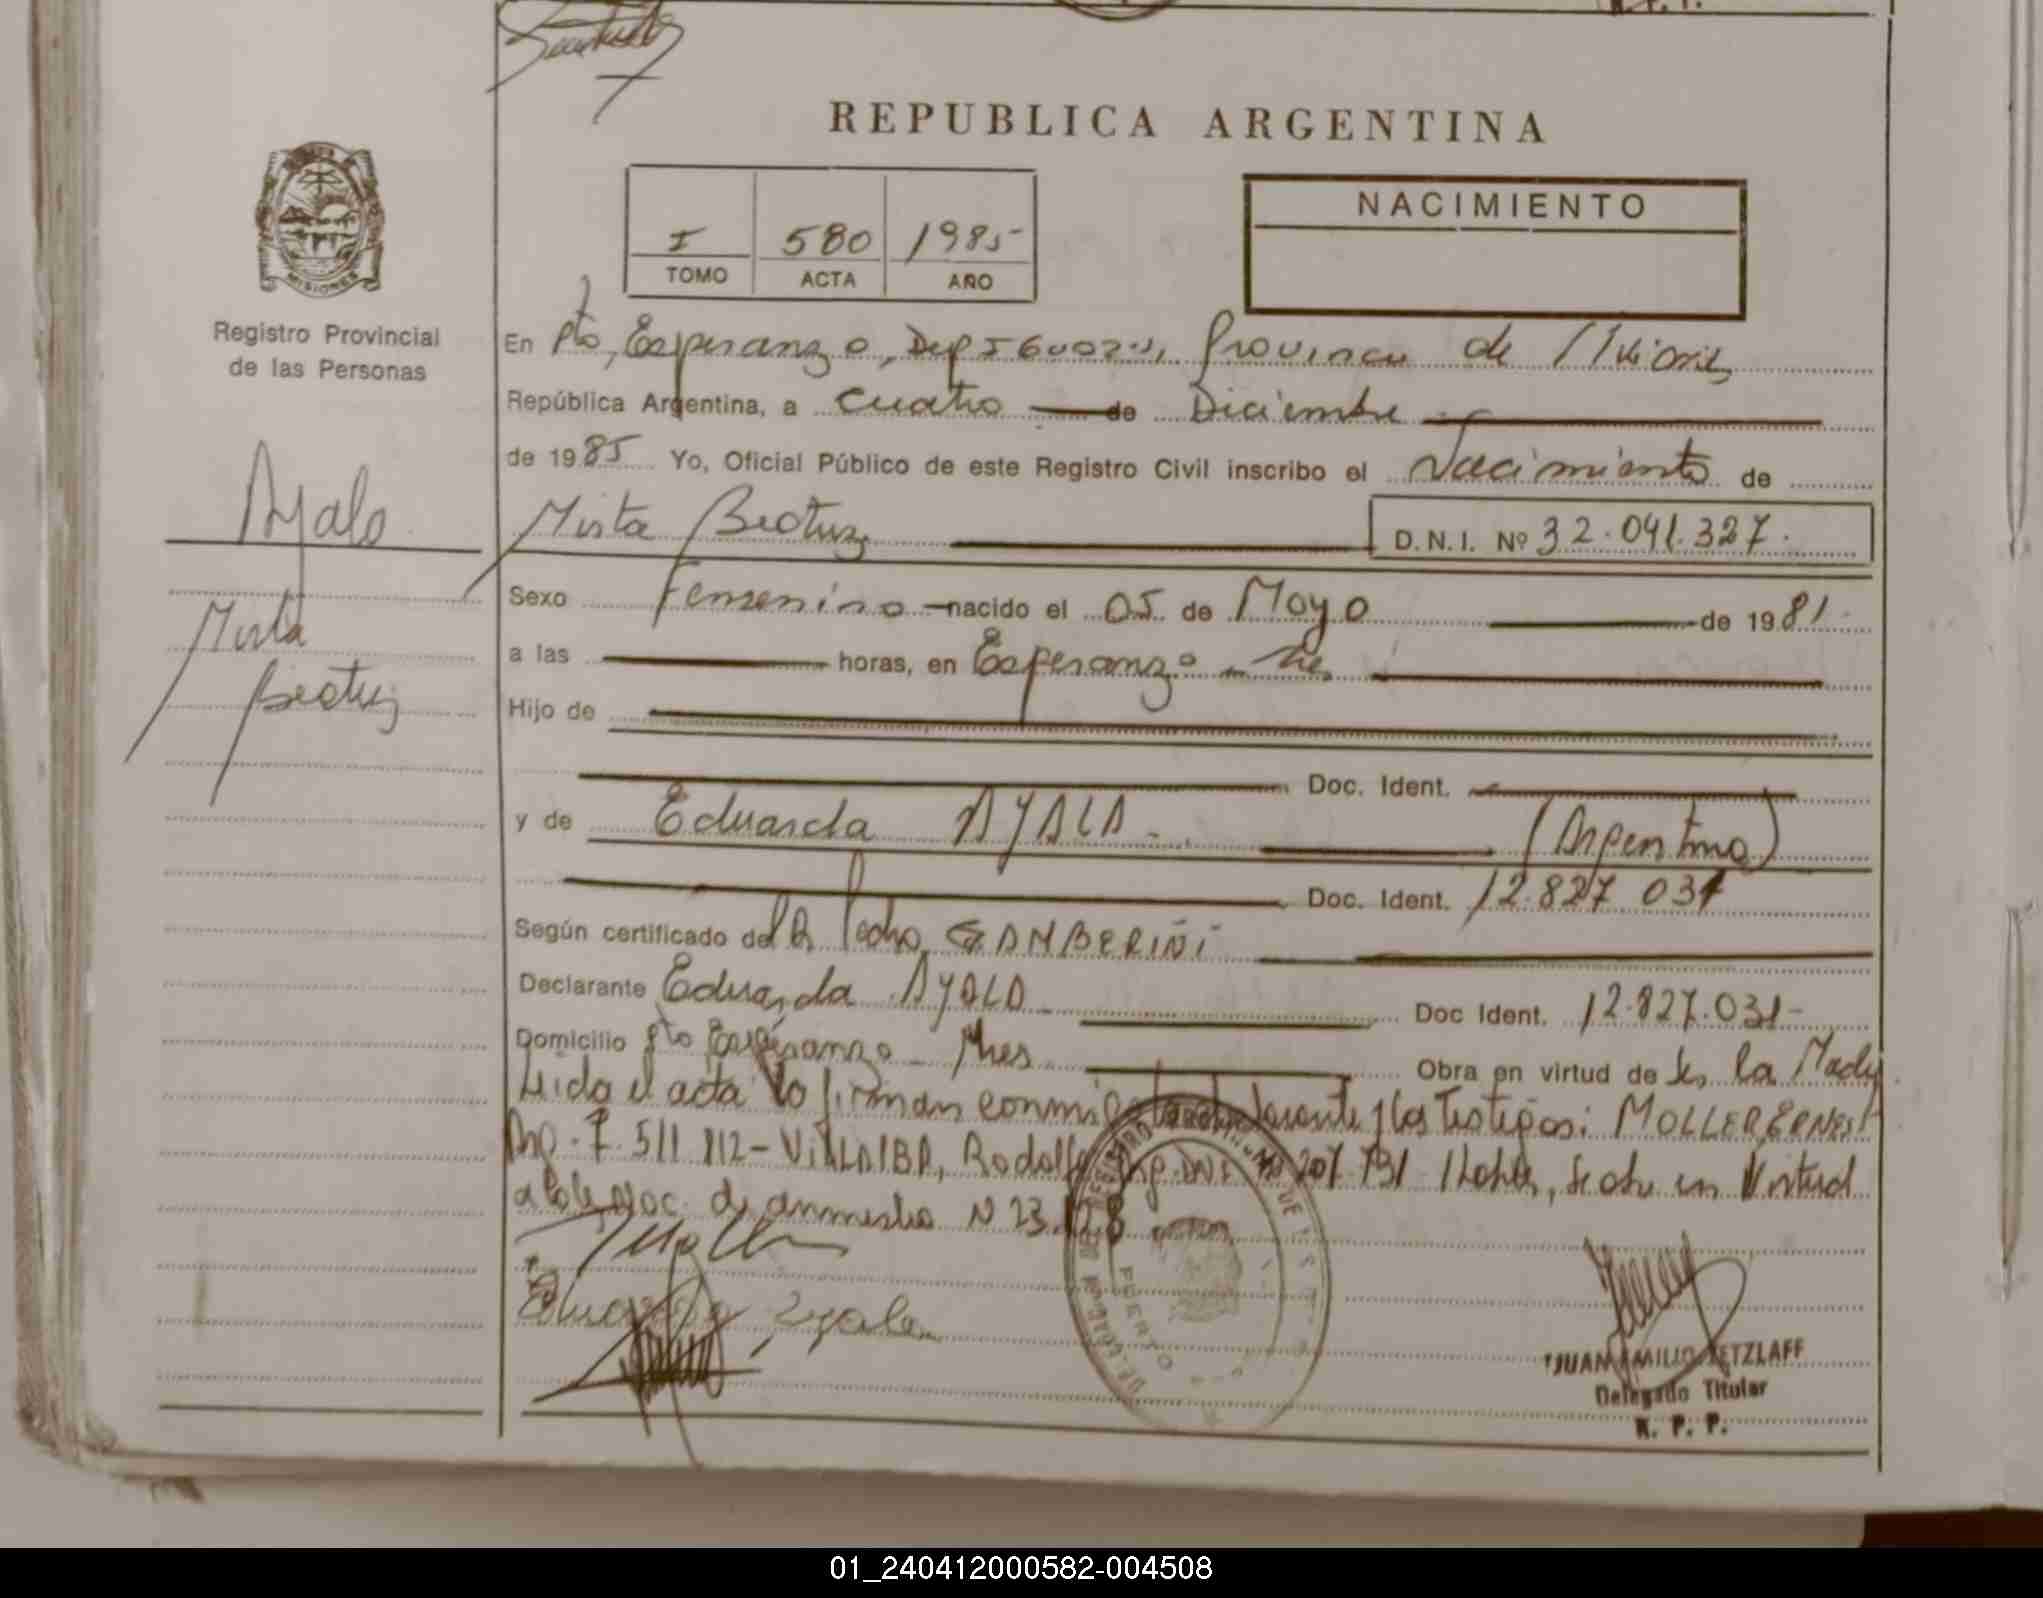 REPUBLICA ARGENTINA
NACIMIENTO
I 580 1985
TOMO ACTA AÑO
MISIONES
Registro Provincial
de las Personas
En Pto, Esperanza, Dep Iguazú, Provincia de Misiones
República Argentina, a cuatro de Diciembre
de 1985 Yo, Oficial Público de este Registro Civil inscribo el Nacimiento de
Mirta Beatriz D.N.I. Nº 32.041.327.
Ayala
Mirta
Beatriz
Sexo Femenino nacido el 05 de Mayo de 1981
a las horas, en Esperanza
Hijo de
Doc. Ident.
y de Eduarda AYALA (Argentina)
Doc. Ident. 12.827 031
Según certificado del Dr Pedro GAMBERINI
Declarante Eduarda AYALA Doc Ident. 12.827.031-
Domicilio Pto Esperanza - Mnes Obra en virtud de ser la Madre
Leida el acta la firman conmigo la declarante y los Testigos: MOLLER ERNEST
Arg. 7.511 112 - VILLALBA, Rodolfo Arg. DNI 207.731 se obra en Virtud
a la de amnistia N 23.128
Eduarda Ayala
PUERTO
JUAN EMILIO RETZLAFF
Delegado Titular
R. P. P.
01_240412000582-004508